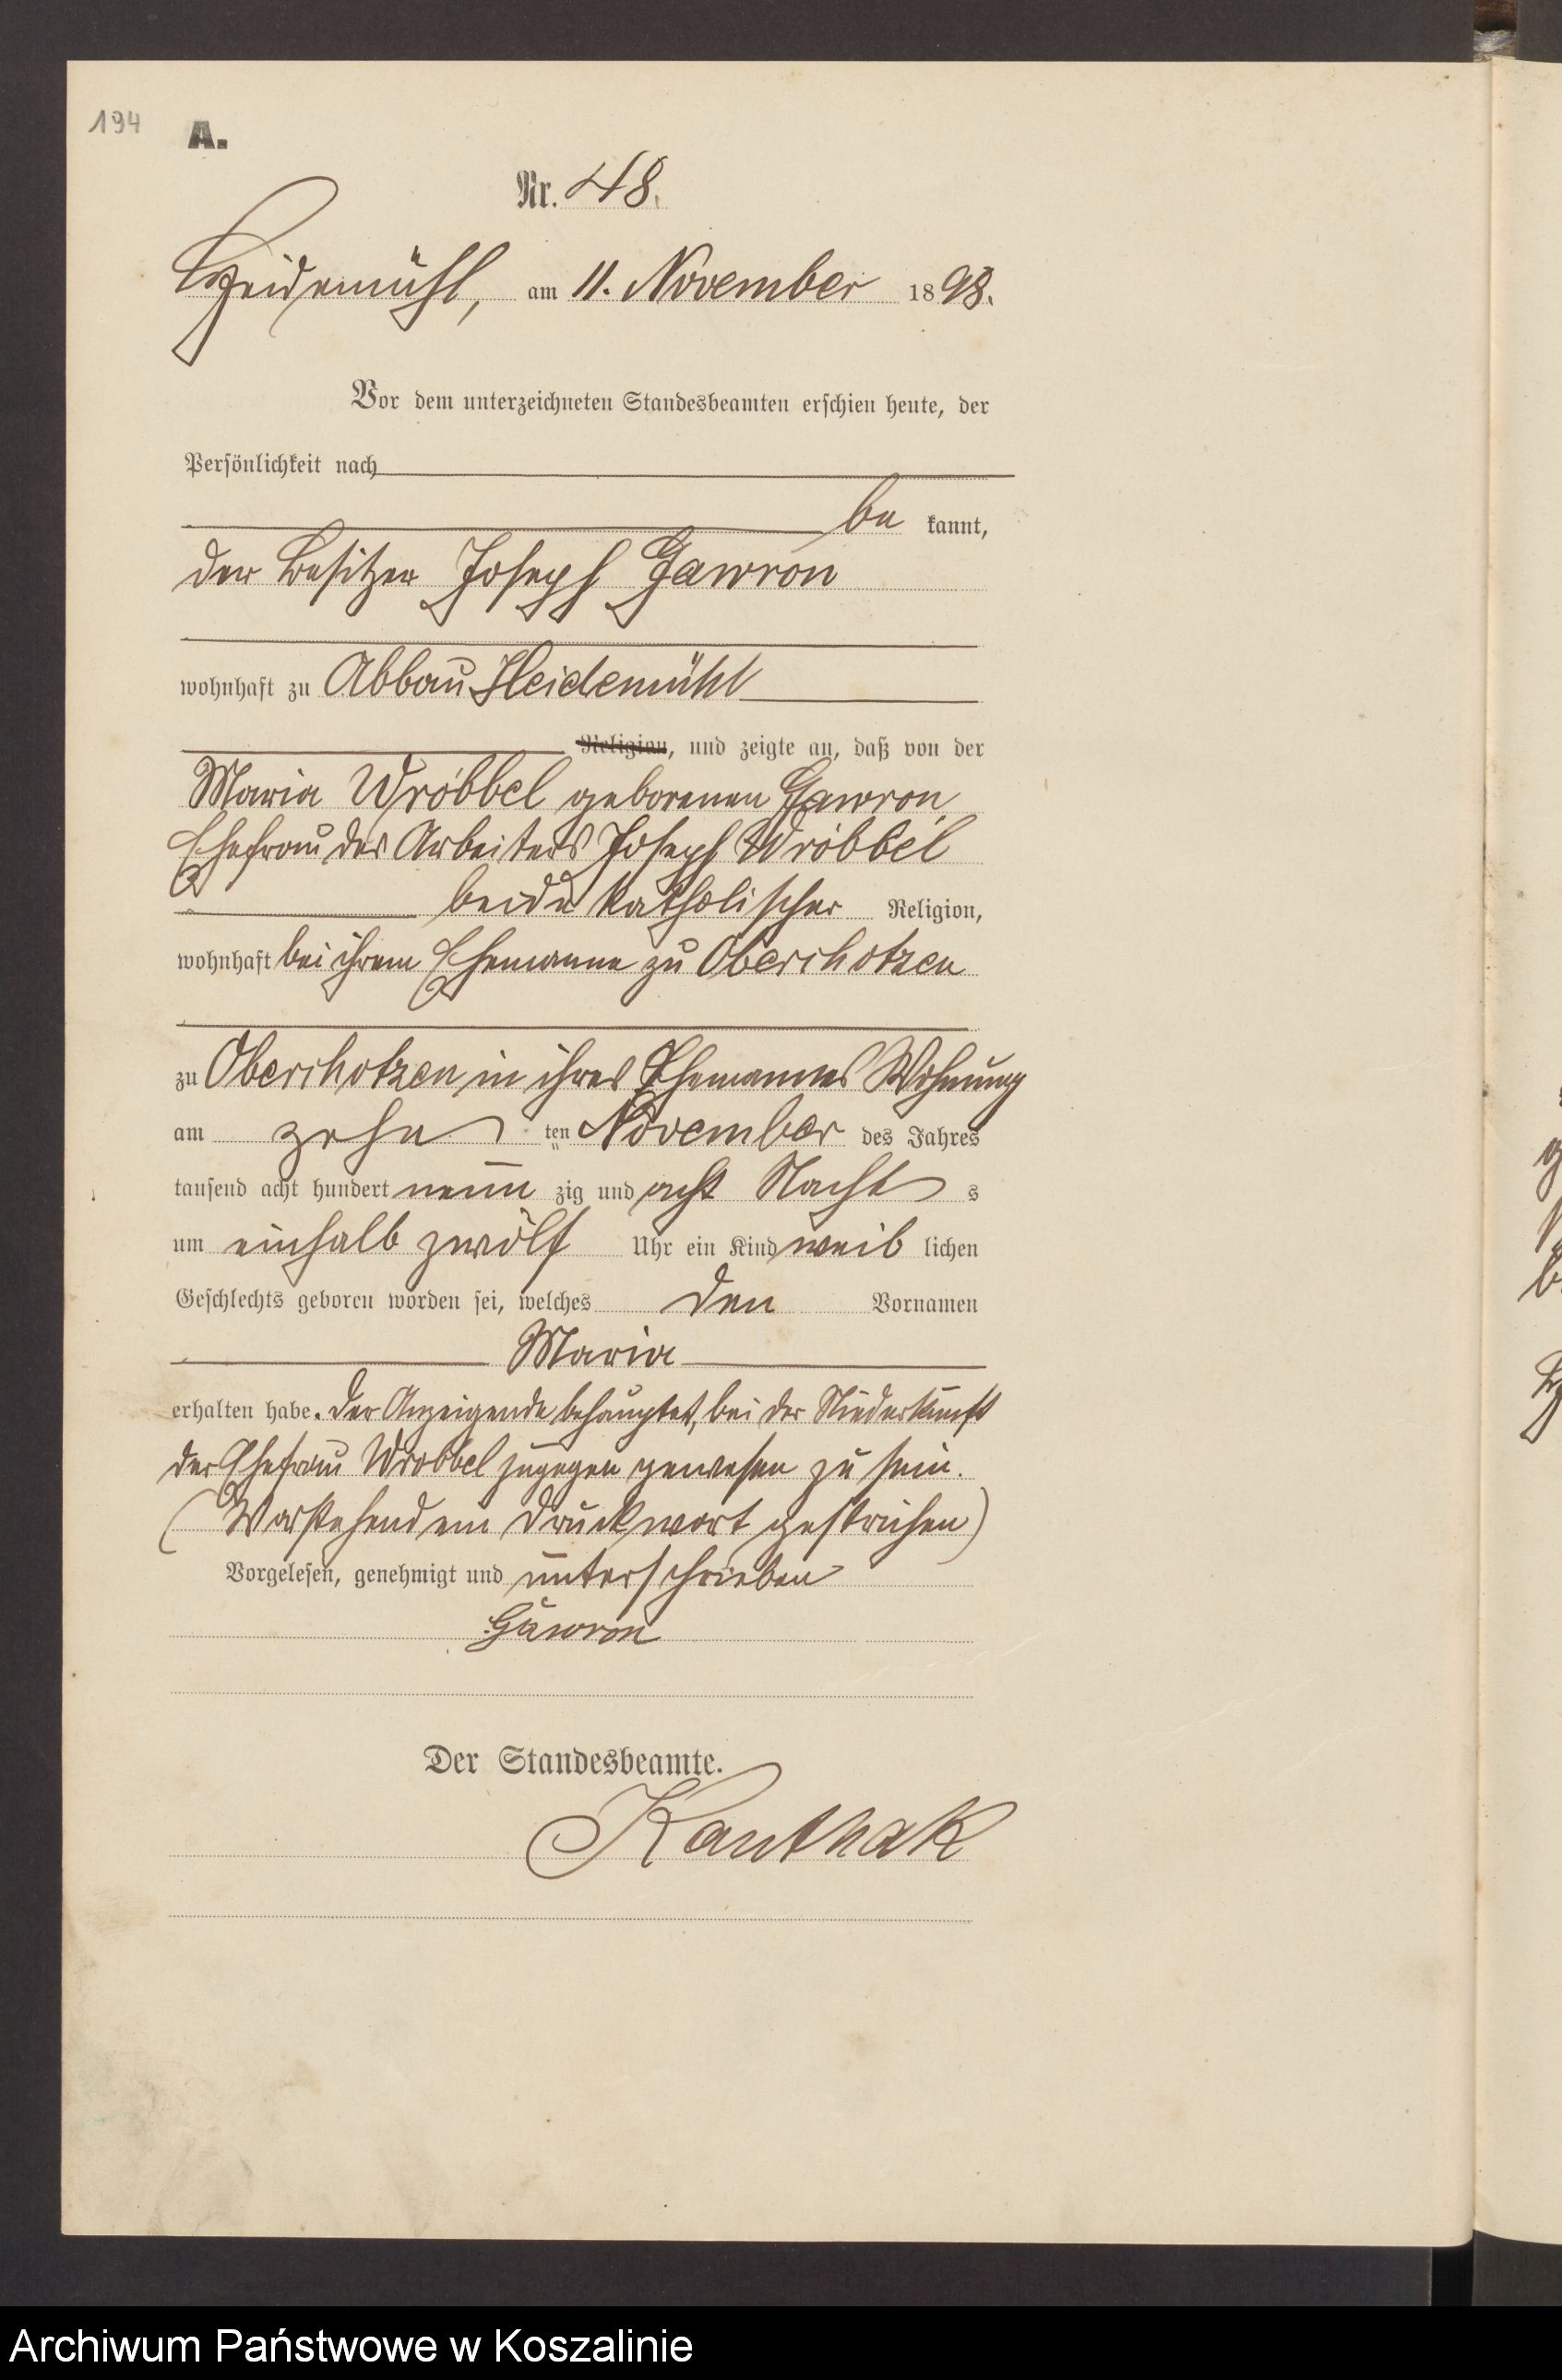 194 A.
Nr. 48.
Heidemühl, am 11. November 1898.
Vor dem unterzeichneten Standesbeamten erschien heute, der
Persönlichkeit nach
be kannt,
der Besitzer Joseph Gawron
wohnhaft zu Abbau Heidemühl
Religion, und zeigte an, daß von der
Maria Wróbbel geborenen Gawron,
Ehefrau des Arbeiters Joseph Wróbbel
beide katholischer Religion,
wohnhaft bei ihrem Ehemanne zu Oberchotzen
zu Oberchotzen in ihres Ehemannes Wohnung
am zehn ten November des Jahres
tausend acht hundert neun zig und acht Nacht s
um einhalb zwölf Uhr ein Kind weib lichen
Geschlechts geboren worden sei, welches den Vornamen
Maria
erhalten habe. Der Anzeigende behauptet, bei der Niederkunft
der Ehefrau Wrobbel zugegen gewesen zu sein.
(Vorstehend ein Druckwort gestrichen)
Vorgelesen, genehmigt und unterschrieben
Gawron
Der Standesbeamte.
Kanthak
Archiwum Państwowe w Koszalinie